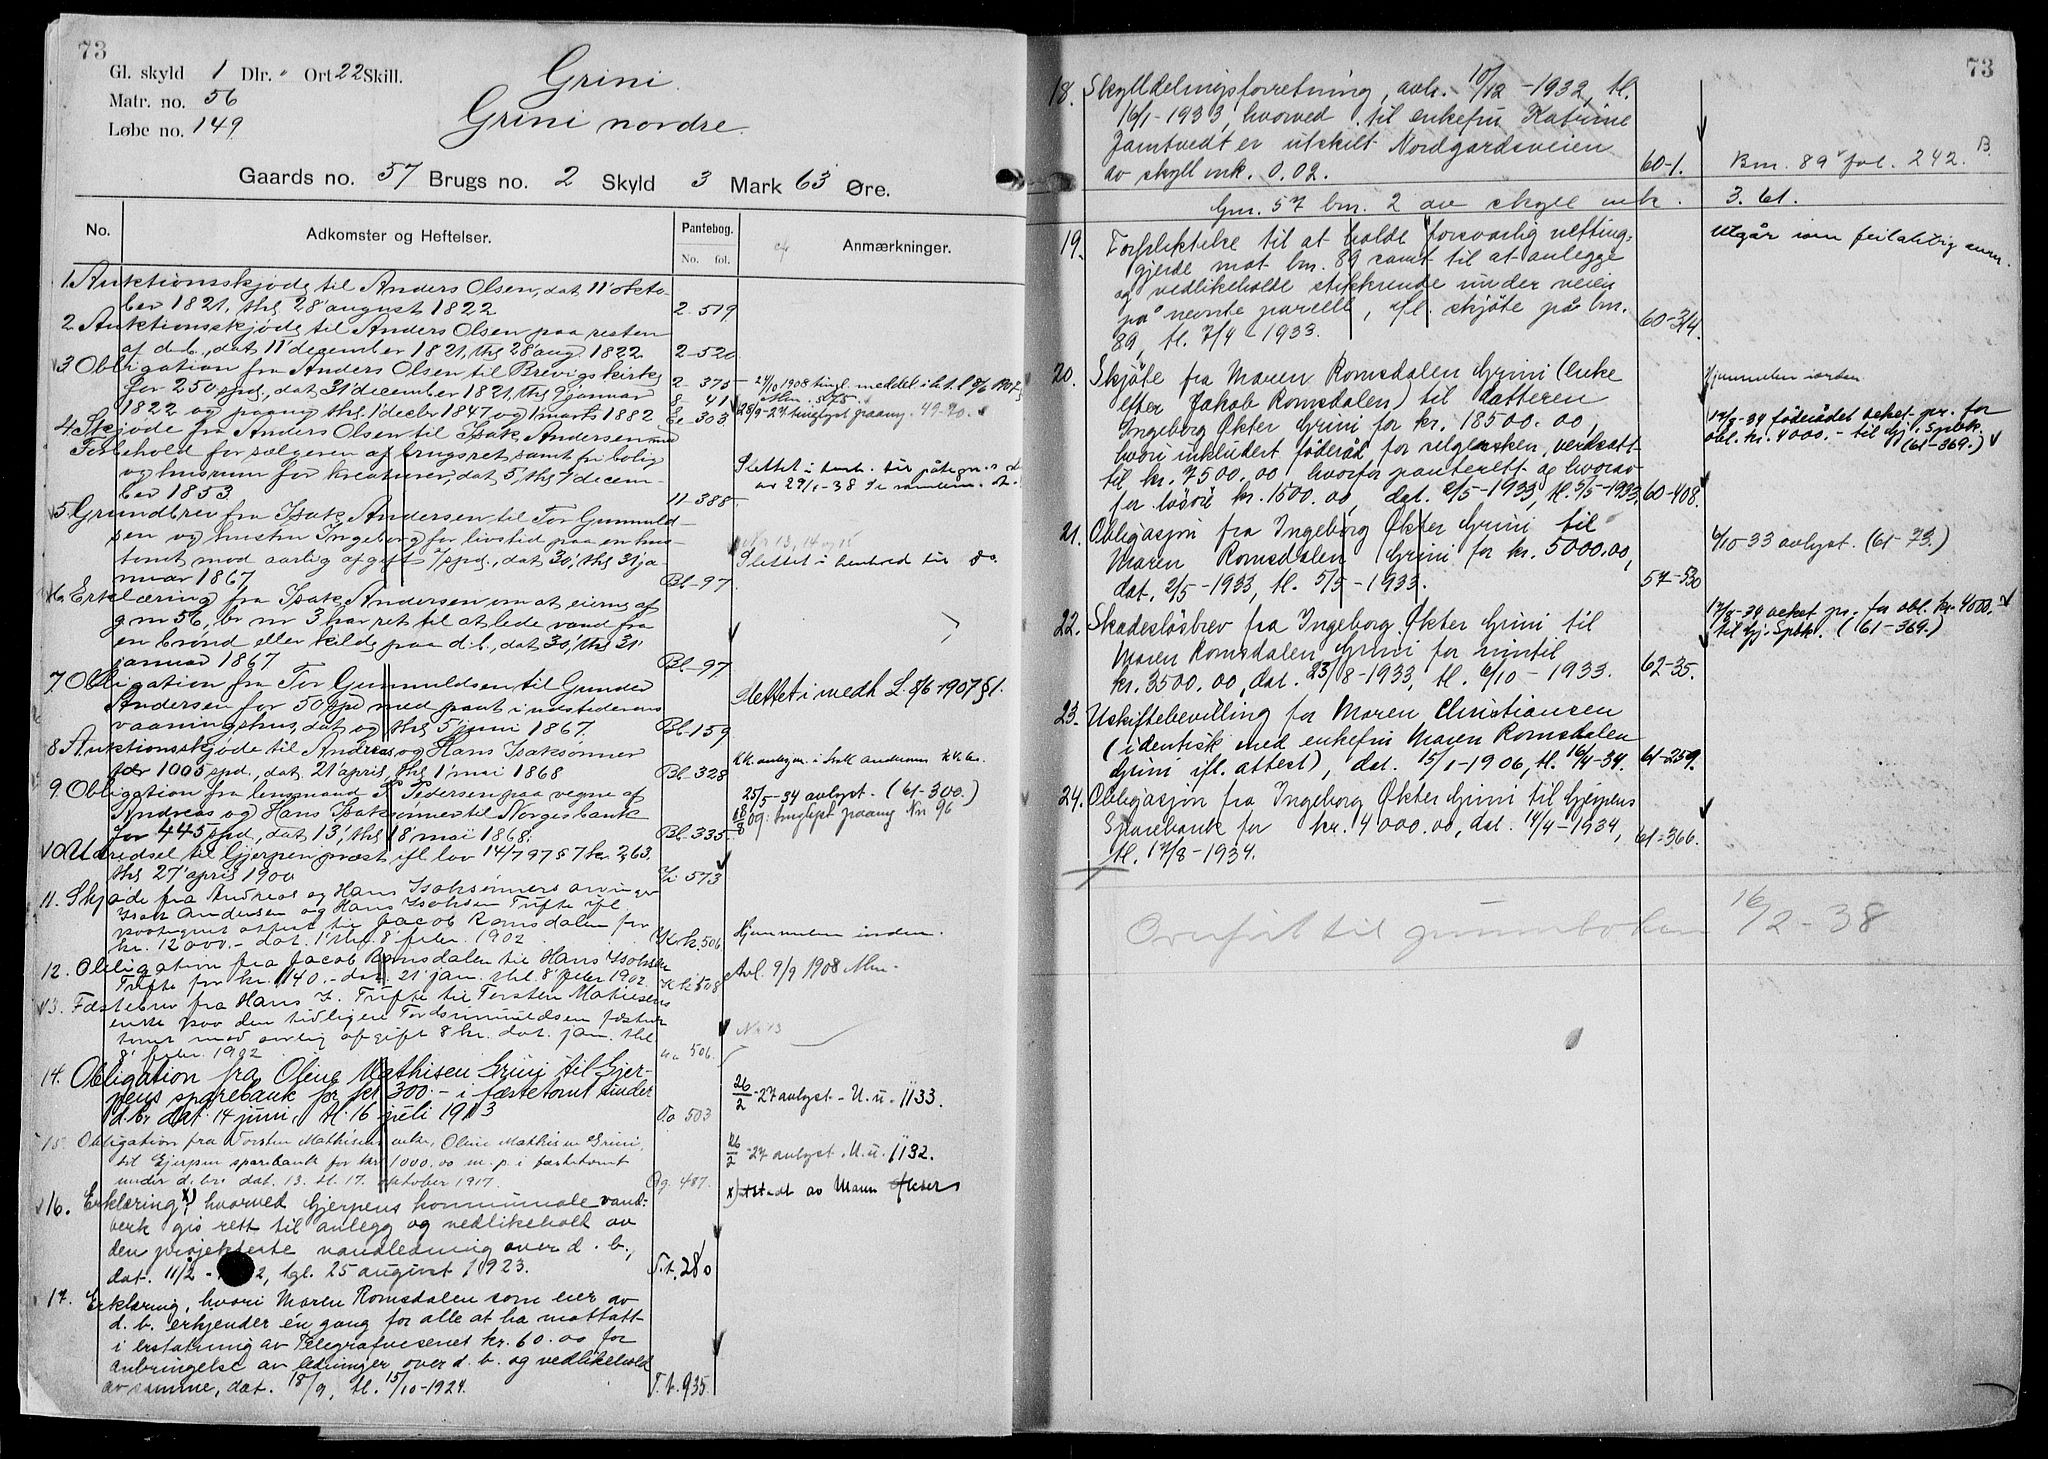 73
Gl. skyld 1 Dlr. " Ort 22 Skill.
Matr. no. 56
Løbe no. 149
Grini.
Grini nordre.
Gaards no. 57 Brugs no. 2 Skyld 3 Mark 63 Øre.
No. Adkomster og Heftelser. Pantebog. Anmærkninger.
No. fol.
1. Auktionsskjøde til Anders Olsen, dat. 11' okto-
ber 1821, thgl. 28' august 1822 2 519
2. Auktionsskjøde til Anders Olsen paa resten
af d. b., dat. 11' december 1821, thgl. 28' aug. 1822 2-520
3. Obligation fra Anders Olsen til Brevigs kirke 2- 375
for 250 spd., dat. 31' december 1821, thgl. 9' januar 8- 41
1822 og paany thgl. 1' decbr 1847 og 1' marts 1882 303 28/9-27 tinglyst paany 49-70.
4. Skjøde fra Anders Olsen til Isak Andersen med
Forbehold for sælgeren af brugsret samt fri bolig
og husrum for kreaturer, dat. 5', thgl. 7' decem-
ber 1853 11-388
5. Grundbrev fra Isak Andersen til Tor Gunnuld-
sen og hustru Ingeborg for livstid paa en hus-
tomt mod aarlig afgift 7 spd., dat. 30', thgl. 31' ja-
nuar 1867 Bl-97 Slettet i henhold til do.
6. Erklæring fra Isak Andersen om at eierne af
g n 56, br nr 3 har ret til at lede vand fra
en brønd eller kilde paa d. b., dat. 30', thgl. 31'
januar 1867 Bl-97
7. Obligation fra Tor Gunnuldsen til Gunder
Andersen for 50 spd med pant i indstederens
vaaningshus, dat. og thgl. 5' juni 1867. Bl-159 Slettet i medh. L. 8/6 1907 § 1.
8. Auktionsskjøde til Andreas og Hans Isaksønner
for 1005 spd., dat. 21' april, thgl. 1' mai 1868 Bl-328
9. Obligation fra lensmand P. Pedersen paa vegne af
Andreas og Hans Isaksønner til Norges bank
for 445 spd, dat. 13', thgl. 18' mai 1868. Bl-335
25/5-34 avlyst. (61-300.)
18/8 09: tinglyst paany Nr. 96
10. Udredsel til Gjerpen præst, ifl. lov 14/7 97 § 7 kr. 2,63.
thgl. 27' april 1900 573
11. Skjøde fra Andreas og Hans Isaksønners arvinger
Isak Andersen og Hans Isaksen Tufte ifl.
attest til Jacob Romsdalen for
kr. 12000.- dat. 1' thgl. 8' febr. 1902 506 Hjemmelen inden.
12. Obligation fra Jacob Romsdalen til Hans Isaksen
Tufte for kr. 1140.- dat. 21' jan. thgl. 8' febr 1902. 508 Avl. 9/9 1908
13. Fæstebrev fra Hans I. Tufte til Torsten Mathisens
enke paa den tidligere
tomt mod aarlig afgift 8 kr. dat. jan. thgl.
8' febr. 1902 506.
14. Obligation fra Oline Mathisen Grini til Gjer-
pens sparebank for kr. 300.- i fæstetomt under
d. br. dat. 14 juni, tl. 16 juli 1913 503 26/2-27 avlyst - U. u. 1133.
15 Obligation fra Torsten Mathisens enke, Oline Mathisen Grini,
til Gjerpen sparebank for kr. 1000.00 m. p. i fæstetomt
under d. br. dat. 13. tl. 17. oktober 1917. 487. 26/2-27 avlyst. U. u. 1132.
16. Erklæring x) hvorved Gjerpens kommunale vand-
verk gis rett til anlegg og vedlikehold av
den projekterte vandledning over d. b.,
dat. 11/2 - 2, tgl. 25 august 1923. T. t. 280
17. Erklæring, hvori Maren Romsdalen som eier av
d. b. erkjender én gang for alle at ha mottatt
i erstatning av Telegrafvesenet kr. 60.00 for
anbringelse av ledninger over d. b. og vedlikehold
av samme, dat. 18/9, tl. 15/10-1924. T. t. 935.
73
18. Skylldelingsforretning, avh. 10/12-1932, tl.
16/1-1933, hvorved til enkefru Katrine
Jamtvedt er utskilt Nordgardsveien
av skyll mk. 0.02. 60-1. Bnr. 89 fol. 242. B.
Gnr. 57 bnr. 2 av skyll mrk. 3.61.
19. Forpliktelse til at holde forsvarlig netting-
gjerde mot bnr. 89 samt til at anlegge
og vedlikeholde stikkrende under veien
på nevnte parcell, ifl. skjøte på bnr.
89, tl. 7/4-1933. 60-314.
Utgår som feilaktig
20. Skjøte fra Maren Romsdalen Grini (enke
efter Jakob Romsdalen) til datteren
Ingeborg Økter Grini for kr. 18500.00,
hvori inkludert föderåd for selgersken, verdsatt
til kr. 7500.00 hvorfor panterett og hvorav
for løsöre kr. 1500.00, dat. 2/5-1933, tl. 5/5-1933. 60-408.
17/8-34 föderådet veket pr. for
obl. kr. 4000.- til Gj. Spbk.
(61-369.)
21. Obligasjon fra Ingeborg Økter Grini til
Maren Romsdalen Grini for kr. 5000.00,
dat. 2/5-1933, tl. 5/5-1933. 57-530
6/10-33 avlyst. (61-73.)
22. Skadesløsbrev fra Ingeborg Økter Grini til
Maren Romsdalen Grini for inntil
kr. 3500.00, dat. 23/8-1933, tl. 6/10-1933. 62-35.
17/8-34 veket pr. for obl. kr. 4000.-
til Gj. Spbk. (61-369.)
23. Uskiftebevilling for Maren Christiansen
(identisk med enkefru Maren Romsdalen
Grini ifl. attest), dat. 15/1-1906, tl. 16/4-34. 61-259.
24. Obligasjon fra Ingeborg Økter Grini til Gjerpens
Sparebank for kr. 4000.00, dat. 14/4-1934,
tl. 17/8-1934. 61-366.
Overført til grunnboken 16/2-38